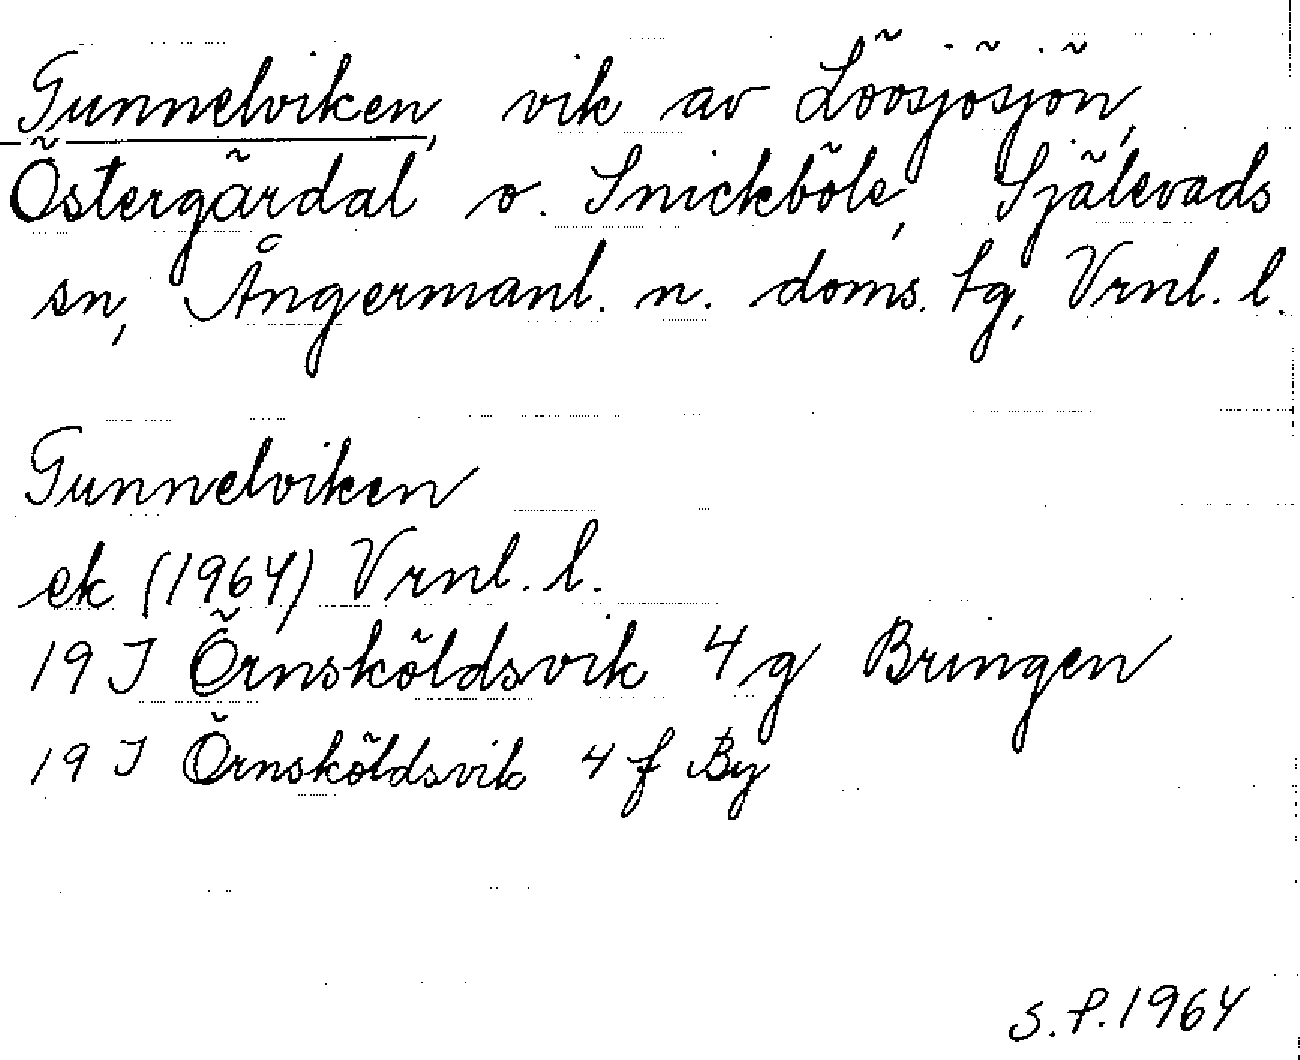 Gunnelviken, vik av Lövsjösjön,
Östergärdal o. Snickböle, Själevads
sn, Ångermanl. n. doms. tg, Vrnl. l.
Gunnelviken
ek (1964) Vrnl. l.
19 J Örnsköldsvik 4 g Bringen
19 J Örnsköldsvik 4 f By
S.P. 1964